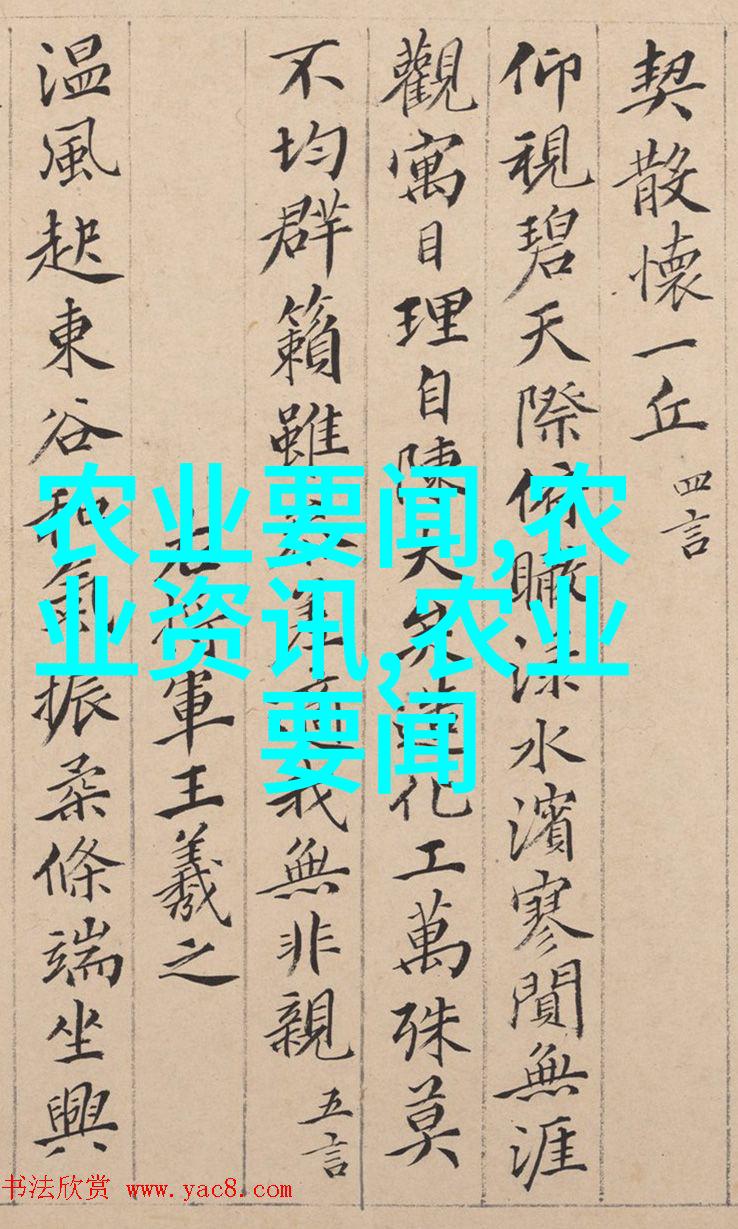 契散懷一丘 四言
仰視碧天際俯瞰淥水濱寥閴無涯
觀寓目理自陳大矣造化工萬殊莫
不均群籟雖參差適我無非親 五言
右將軍王羲之
温風起東谷和氣振柔條端坐興
农业要闻,农
业资讯,农业
要闻
书法欣赏 www.yac8.com